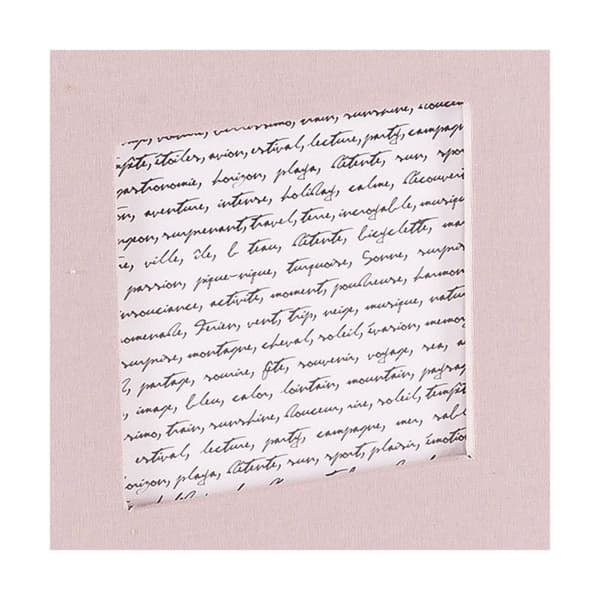 verissimo, train, sunshine, douceur
tempête, étoiles, avion, estival, lecture, party, campagne
gastronomie, horizon, playa, détente, sun, spor
on, aventure, intense, holiday, calme, découver
geon, surprenant, travel, terre, incroyable, musiqu
e, ville, île, b teau, détente, bicyclette, ma
passion, pique-nique, turquoise, surpris
insouciance, activité, moment, poudreuse, harmon
omenade, vent, trip, neige, musique, natur
surprise, montagne, cheval, soleil, évasion, memor
partage, sourire, fête, souvenir, voyage, sea, a
image, bleu, calor, lointain, mountain, paysag
simo, train, sunshine, douceur, rire, soleil, tempêt
estival, lecture, party, campagne, mer, sabl
orizon, playa, détente, sun, sport, plaisir, émotion